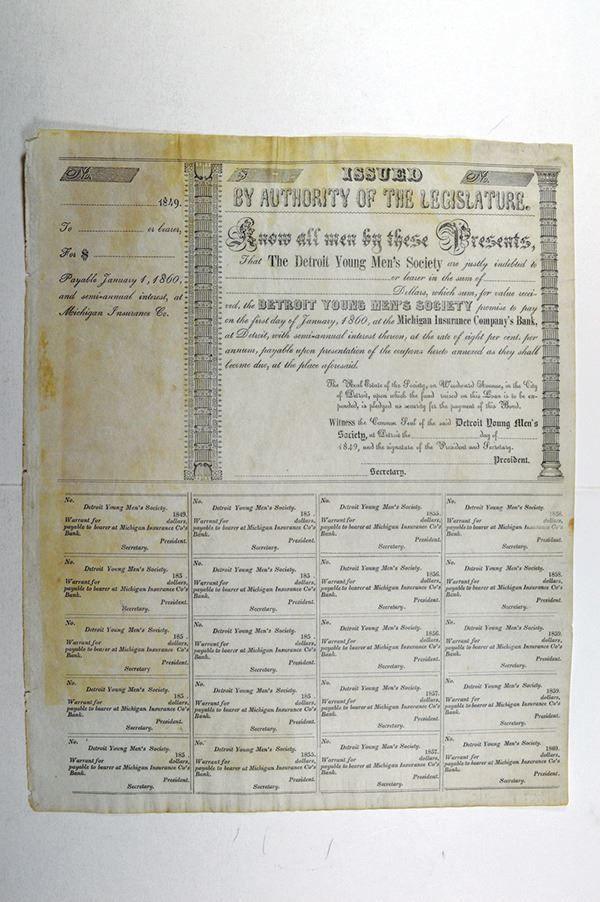 No.
1849.
To or bearer,
For $
Payable January 1, 1860,
and semi-annual interest, at
Michigan Insurance Co.
$ ISSUED No.
BY AUTHORITY OF THE LEGISLATURE.
Know all men by these Presents,
That The Detroit Young Men's Society are justly indebted to
or bearer in the sum of
Dollars, which sum, for value recei-
ved, the DETROIT YOUNG MEN'S SOCIETY promise to pay
on the first day of January, 1860, at the Michigan Insurance Company's Bank,
at Detroit, with semi-annual interest thereon, at the rate of eight per cent. per
annum, payable upon presentation of the coupons hereto annexed as they shall
become due, at the place aforesaid.
The Real Estate of the Society, on Woodward Avenue, in the City
of Detroit, upon which the fund raised on this Loan is to be ex-
pended, is pledged as security for the payment of this Bond.
Witness the Common Seal of the said Detroit Young Men's
Society, at Detroit the day of
1849, and the signature of the President and Secretary.
President.
Secretary.
No.
Detroit Young Men's Society.
1849.
Warrant for dollars,
payable to bearer at Michigan Insurance Co's
Bank. President.
Secretary.
No.
Detroit Young Men's Society.
185 .
Warrant for dollars,
payable to bearer at Michigan Insurance Co's
Bank. President.
Secretary.
No.
Detroit Young Men's Society.
1855.
Warrant for dollars,
payable to bearer at Michigan Insurance Co's
Bank. President.
Secretary.
No.
Detroit Young Men's Society.
1858.
Warrant for dollars,
payable to bearer at Michigan Insurance Co's
Bank. President.
Secretary.
No.
Detroit Young Men's Society.
185 .
Warrant for dollars,
payable to bearer at Michigan Insurance Co's
Bank. President.
Secretary.
No.
Detroit Young Men's Society.
185 .
Warrant for dollars,
payable to bearer at Michigan Insurance Co's
Bank. President.
Secretary.
No.
Detroit Young Men's Society.
1856.
Warrant for dollars,
payable to bearer at Michigan Insurance Co's
Bank. President.
Secretary.
No.
Detroit Young Men's Society.
1858.
Warrant for dollars,
payable to bearer at Michigan Insurance Co's
Bank. President.
Secretary.
No.
Detroit Young Men's Society.
185 .
Warrant for dollars,
payable to bearer at Michigan Insurance Co's
Bank. President.
Secretary
No.
Detroit Young Men's Society.
185 .
Warrant for dollars,
payable to bearer at Michigan Insurance Co's
Bank. President.
Secretary.
No.
Detroit Young Men's Society.
1856.
Warrant for dollars,
payable to bearer at Michigan Insurance Co's
Bank. President.
Secretary.
No.
Detroit Young Men's Society.
1859.
Warrant for dollars,
payable to bearer at Michigan Insurance Co's
Bank. President.
Secretary.
No.
Detroit Young Men's Society.
185 .
Warrant for dollars,
payable to bearer at Michigan Insurance Co's
Bank. President.
Secretary.
No.
Detroit Young Men's Society.
185 .
Warrant for dollars,
payable to bearer at Michigan Insurance Co's
Bank. President.
Secretary.
No.
Detroit Young Men's Society.
1857.
Warrant for dollars,
payable to bearer at Michigan Insurance Co's
Bank. President.
Secretary.
No.
Detroit Young Men's Society.
1859.
Warrant for dollars,
payable to bearer at Michigan Insurance Co's
Bank. President.
Secretary.
No.
Detroit Young Men's Society.
185 .
Warrant for dollars,
payable to bearer at Michigan Insurance Co's
Bank. President.
Secretary.
No.
Detroit Young Men's Society.
1855.
Warrant for dollars,
payable to bearer at Michigan Insurance Co's
Bank. President.
Secretary.
No.
Detroit Young Men's Society.
1857.
Warrant for dollars,
payable to bearer at Michigan Insurance Co's
Bank. President.
Secretary.
No.
Detroit Young Men's Society.
1860.
Warrant for dollars,
payable to bearer at Michigan Insurance Co's
Bank. President.
Secretary.